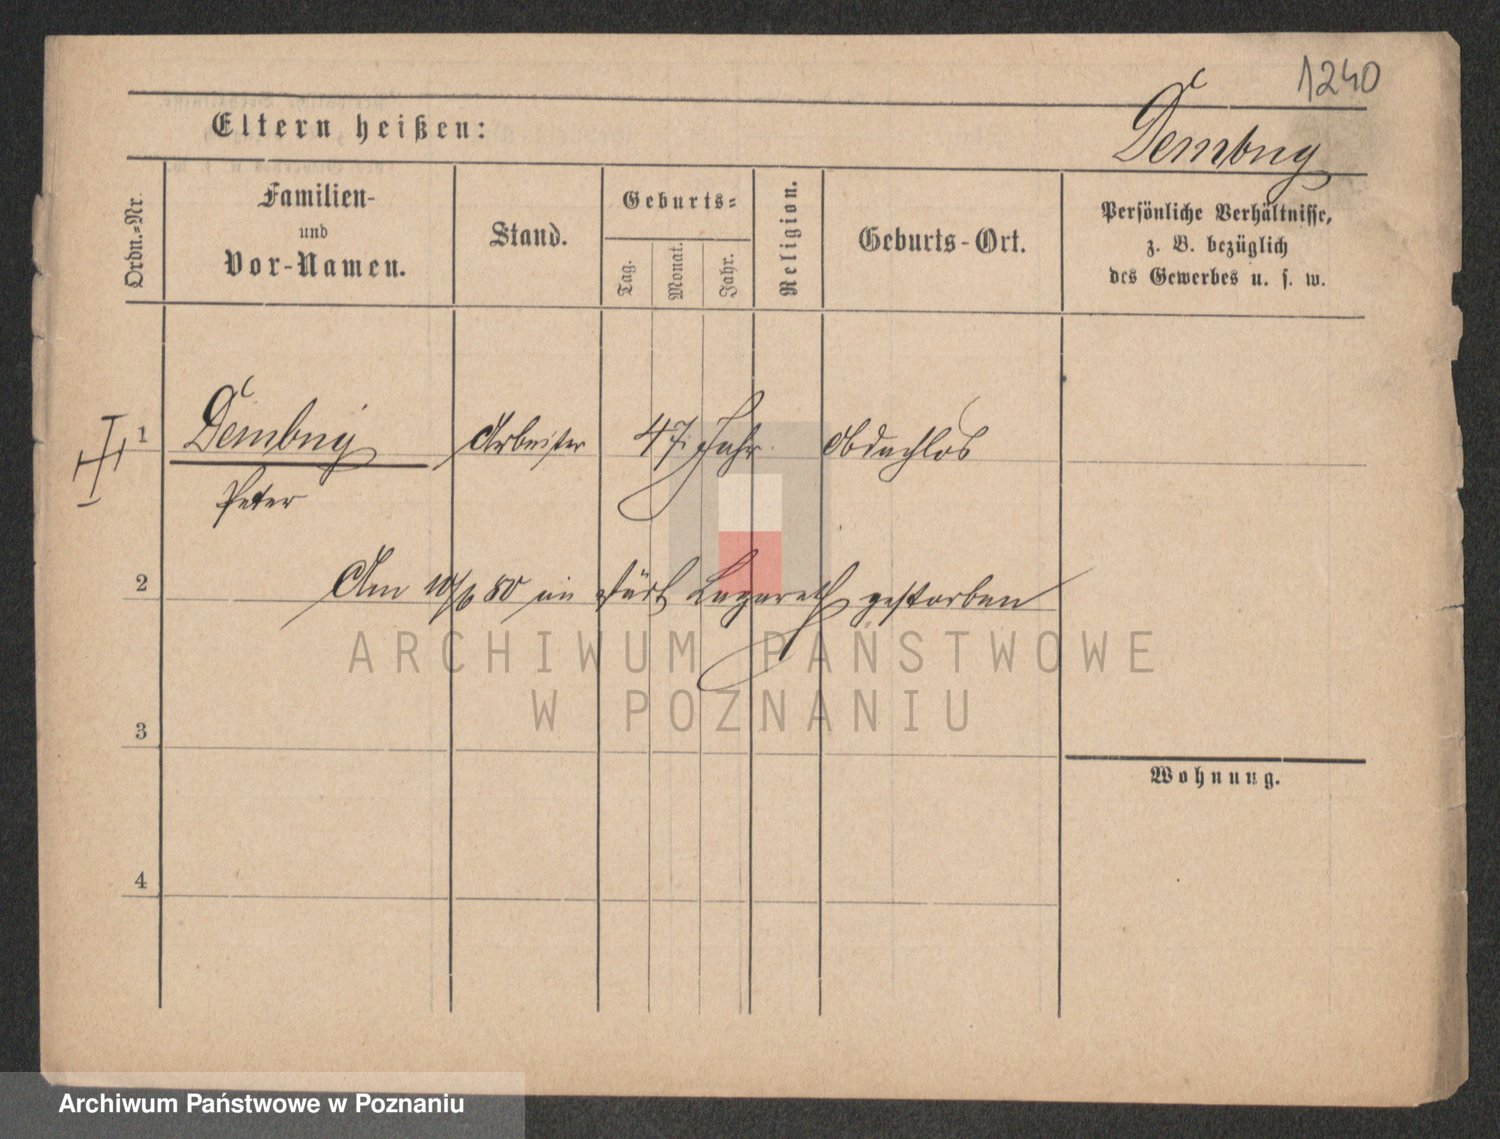 1240
Eltern heißen:
Dembny
Ordn.=Nr.
Familien-
und
Vor-Namen.
Stand.
Geburts=
Tag.
Monat.
Jahr.
Religion.
Geburts-Ort.
Persönliche Verhältnisse,
z. B. bezüglich
des Gewerbes u. s. w.
1
Dembny
Arbeiter
47. Jahr.
Obdachlos
Peter
2
Am 10/6 80 im städt Lazareth gestorben
ARCHIWUM PAŃSTWOWE
W POZNANIU
3
Wohnung.
4
Archiwum Państwowe w Poznaniu